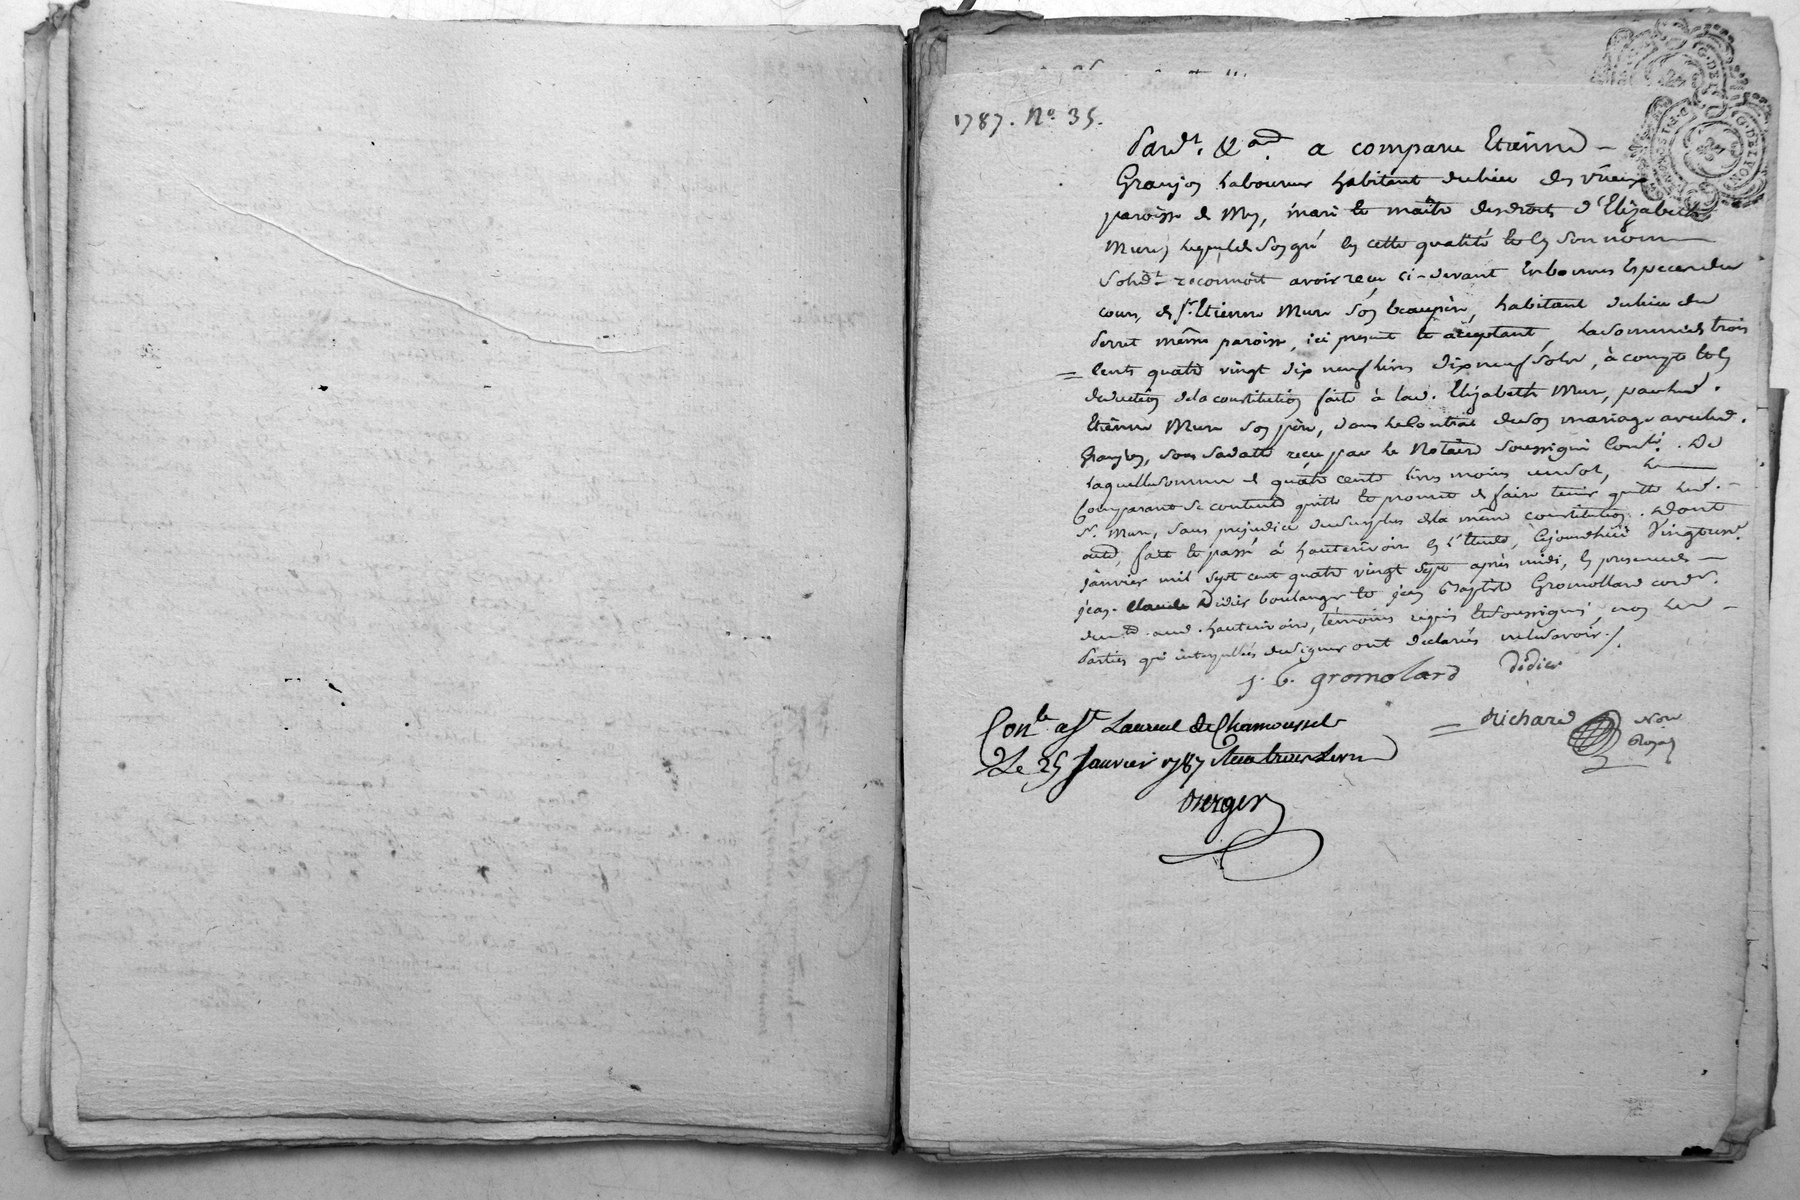 1787. No. 35.
Pardt. &a. a comparu Etienne
Granjon laboureur habitant du lieu des
paroisse de Mes, mari et maître des droits d'Elizabeth
Mure, lequel de son gré en cette qualité et en son nom
solidt. reconnoit avoir reçu ci-devant en bonnes especes du
cours, de sr. Etienne Mure son beaupère, habitant du lieu du
Perret même paroisse, ici present et acceptant, la somme de trois
cents quatre vingt dix neuf livres dix neuf sols, à compte et en
deduction de la constitution faite à lad. Elizabeth Mure, par led.
Etienne Mure son père, dans le contrat de son mariage avec led.
Granjon, sous sa datte reçu par le Notaire soussigné Contlé. De
laquelle somme de quatre cents livres moins un sol, le
Comparant se contente quitte et promet de faire tenir quitte led.
sr. Mure, sans prejudice du surplus de la même constitution. Dont
acte, fait et passé à hauterivoire en l'Etude, cejourdhui vingt
janvier mil sept cent quatre vingt sept après midi, en presence de
jean Claude Didier boulanger et jean Baptiste Gromollard cordr.
demt. aud. hauterivoire, témoins requis et soussignés, non les
Parties qui interpellées de signer ont declarés ne le savoir./.
j. b. gromolard Didier
Richard Nore
Royal
Conlé a st Laurent de Chamousset
Le 25 Janvier 1787
Berger